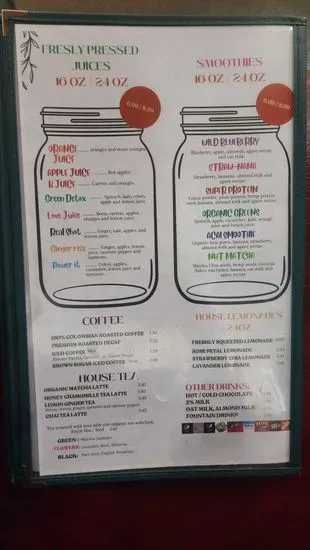 FRESLY PRESSED
JUICES
16 OZ / 24 OZ
6.99 / 8.99
ORANGE JUICE ...... oranges and more oranges.
APPLE JUICE ...... Red apples.
K JUICE ...... Carrots and oranges.
Green Detox ...... Spinach, kale, celery, apple and lemon juice.
Love Juice ...... Beets, carrots, apples, oranges and lemon juice.
Real Shot ...... Ginger, kale, apples, and lemon juice.
Ginger rise ...... Ginger, apples, lemon juice, cayenne pepper and turmeric.
Power it ...... Celery, apples, cucumber, lemon juice and turmeric.
SMOOTHIES
16 OZ / 24 OZ
WILD BLUEBERRY
Blueberry, apple, almonds, agave nectar and oat milk.
STRAW-NANA
Strawberry, banana, almond milk and agave nectar.
SUPER PROTEIN
ORGANIC GREENS
Spinach, apple, cucumber, kale, orange juice and lemon juice.
ACAI SMOOTHIE
Organic Acai puree, banana, strawberry, almond milk and agave nectar.
NUT MATCHA
Matcha, Chia seeds, hemp seeds, coconut flakes, oat butter, banana, oat milk and agave nectar.
COFFEE
100% COLOMBIAN ROASTED COFFEE
PREMIUM ROASTED DECAF
ICED COFFEE
BROWN SUGAR ICED COFFEE
HOUSE TEA
ORGANIC MATCHA LATTE
HONEY CHAMOMILLE TEA LATTE
LEMON GINGER TEA
Honey, lemon, ginger, turmeric and cayenne pepper
CHAI TEA LATTE
Tea yourself with love with our organic tea selection.
GREEN : Matcha, Jasmine
FLOWERS: Lavender, Rose, Hibiscus
BLACK: Earl Grey, English Breakfast
HOUSE LEMONADES
24OZ
FRESHLY SQUEEZED LEMONADE
ROSE PETAL LEMONADE
STRAWBERRY CHIA LEMONADE
LAVENDER LEMONADE
OTHER DRINKS:
HOT / COLD CHOCOLATE
2% MILK
OAT MILK, ALMOND MILK
FOUNTAIN DRINKS